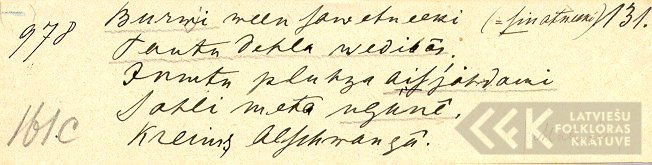 978 Burwji ween sawetneeki (= sinatneeki) 131.
Tautu dehla wedibās,
Jumtu pluhza aisjahdami
Sahli meta ugunē.
161c Kreims, Alschwangā.
LATVIEŠU
FOLKLORAS
KRĀTUVE